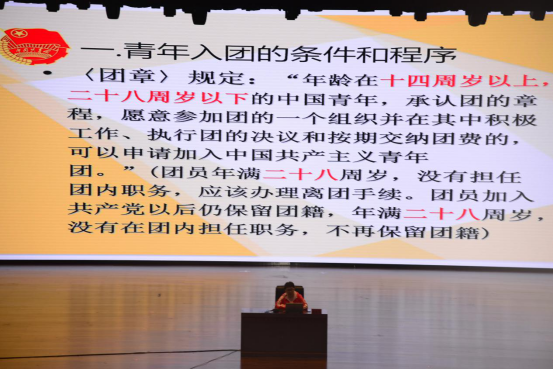 一.青年入团的条件和程序
• 〈团章〉规定：“年龄在十四周岁以上，
二十八周岁以下的中国青年，承认团的章
程，愿意参加团的一个组织并在其中积极
工作、执行团的决议和按期交纳团费的，
可以申请加入中国共产主义青年
团。”（团员年满二十八周岁，没有担任
团内职务，应该办理离团手续。团员加入
共产党以后仍保留团籍，年满二十八周岁，
没有在团内担任职务，不再保留团籍）